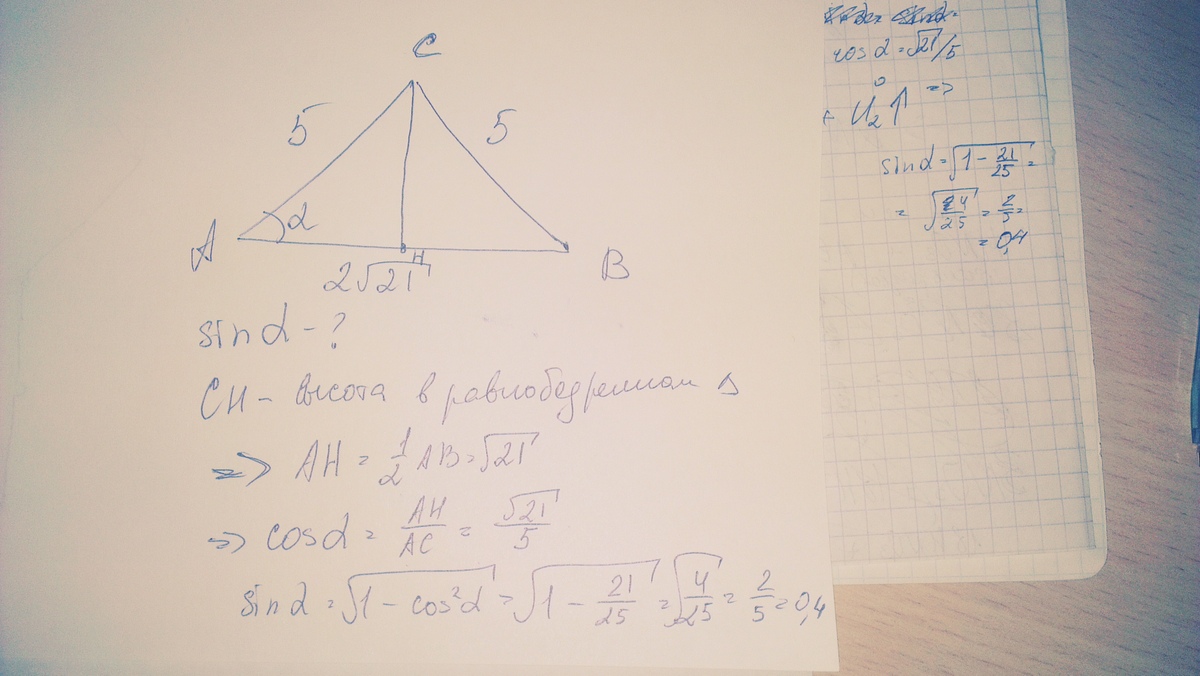 C
5 5
A α H B
2√21
sin α - ?
CH - высота в равнобедренном Δ
=> AH = 1/2 AB = √21
=> cos α = AH/AC = √21/5
sin α = √(1 - cos²α) = √(1 - 21/25) = √(4/25) = 2/5 = 0,4
cos α = √21/5
=>
sin α = √(1 - 21/25) =
= √(4/25) = 2/5 =
= 0,4